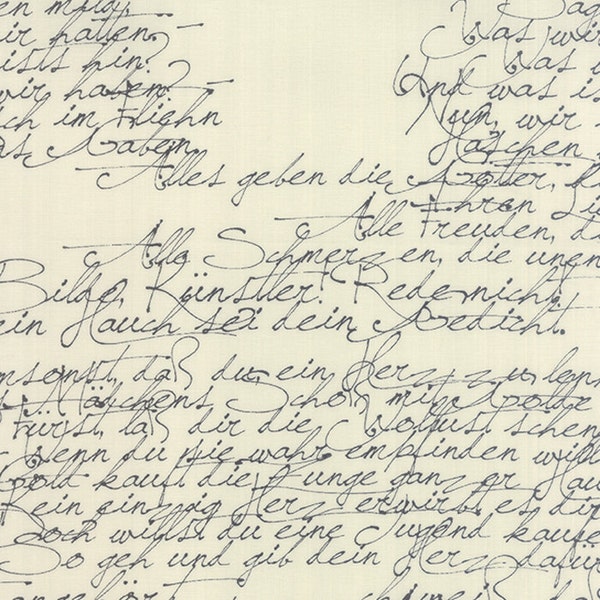 ir hatten. Was wir
ists hin? Was
wir haben? Und was is
ch im Fliehn Nun, wir
as Haben. Haschen
Alles geben die Götter,
Ihren Li
Alle Freuden, d
Alle Schmerzen, die unen
Bilde, Künstler! Rede nicht!
ein Hauch sei dein Gedicht.
msonst, daß du, ein Herz zu lenn
s Mädchens Schoß mit Golde
Fürst, laß dir die Wollust schen
Wenn du sie wahr empfinden will
Gold kauft die Zunge ganzer Hau
Kein einzig Herz erwirbt es dir
Doch willst du eine Tugend kaufe
So geh und gib dein Herz dafür